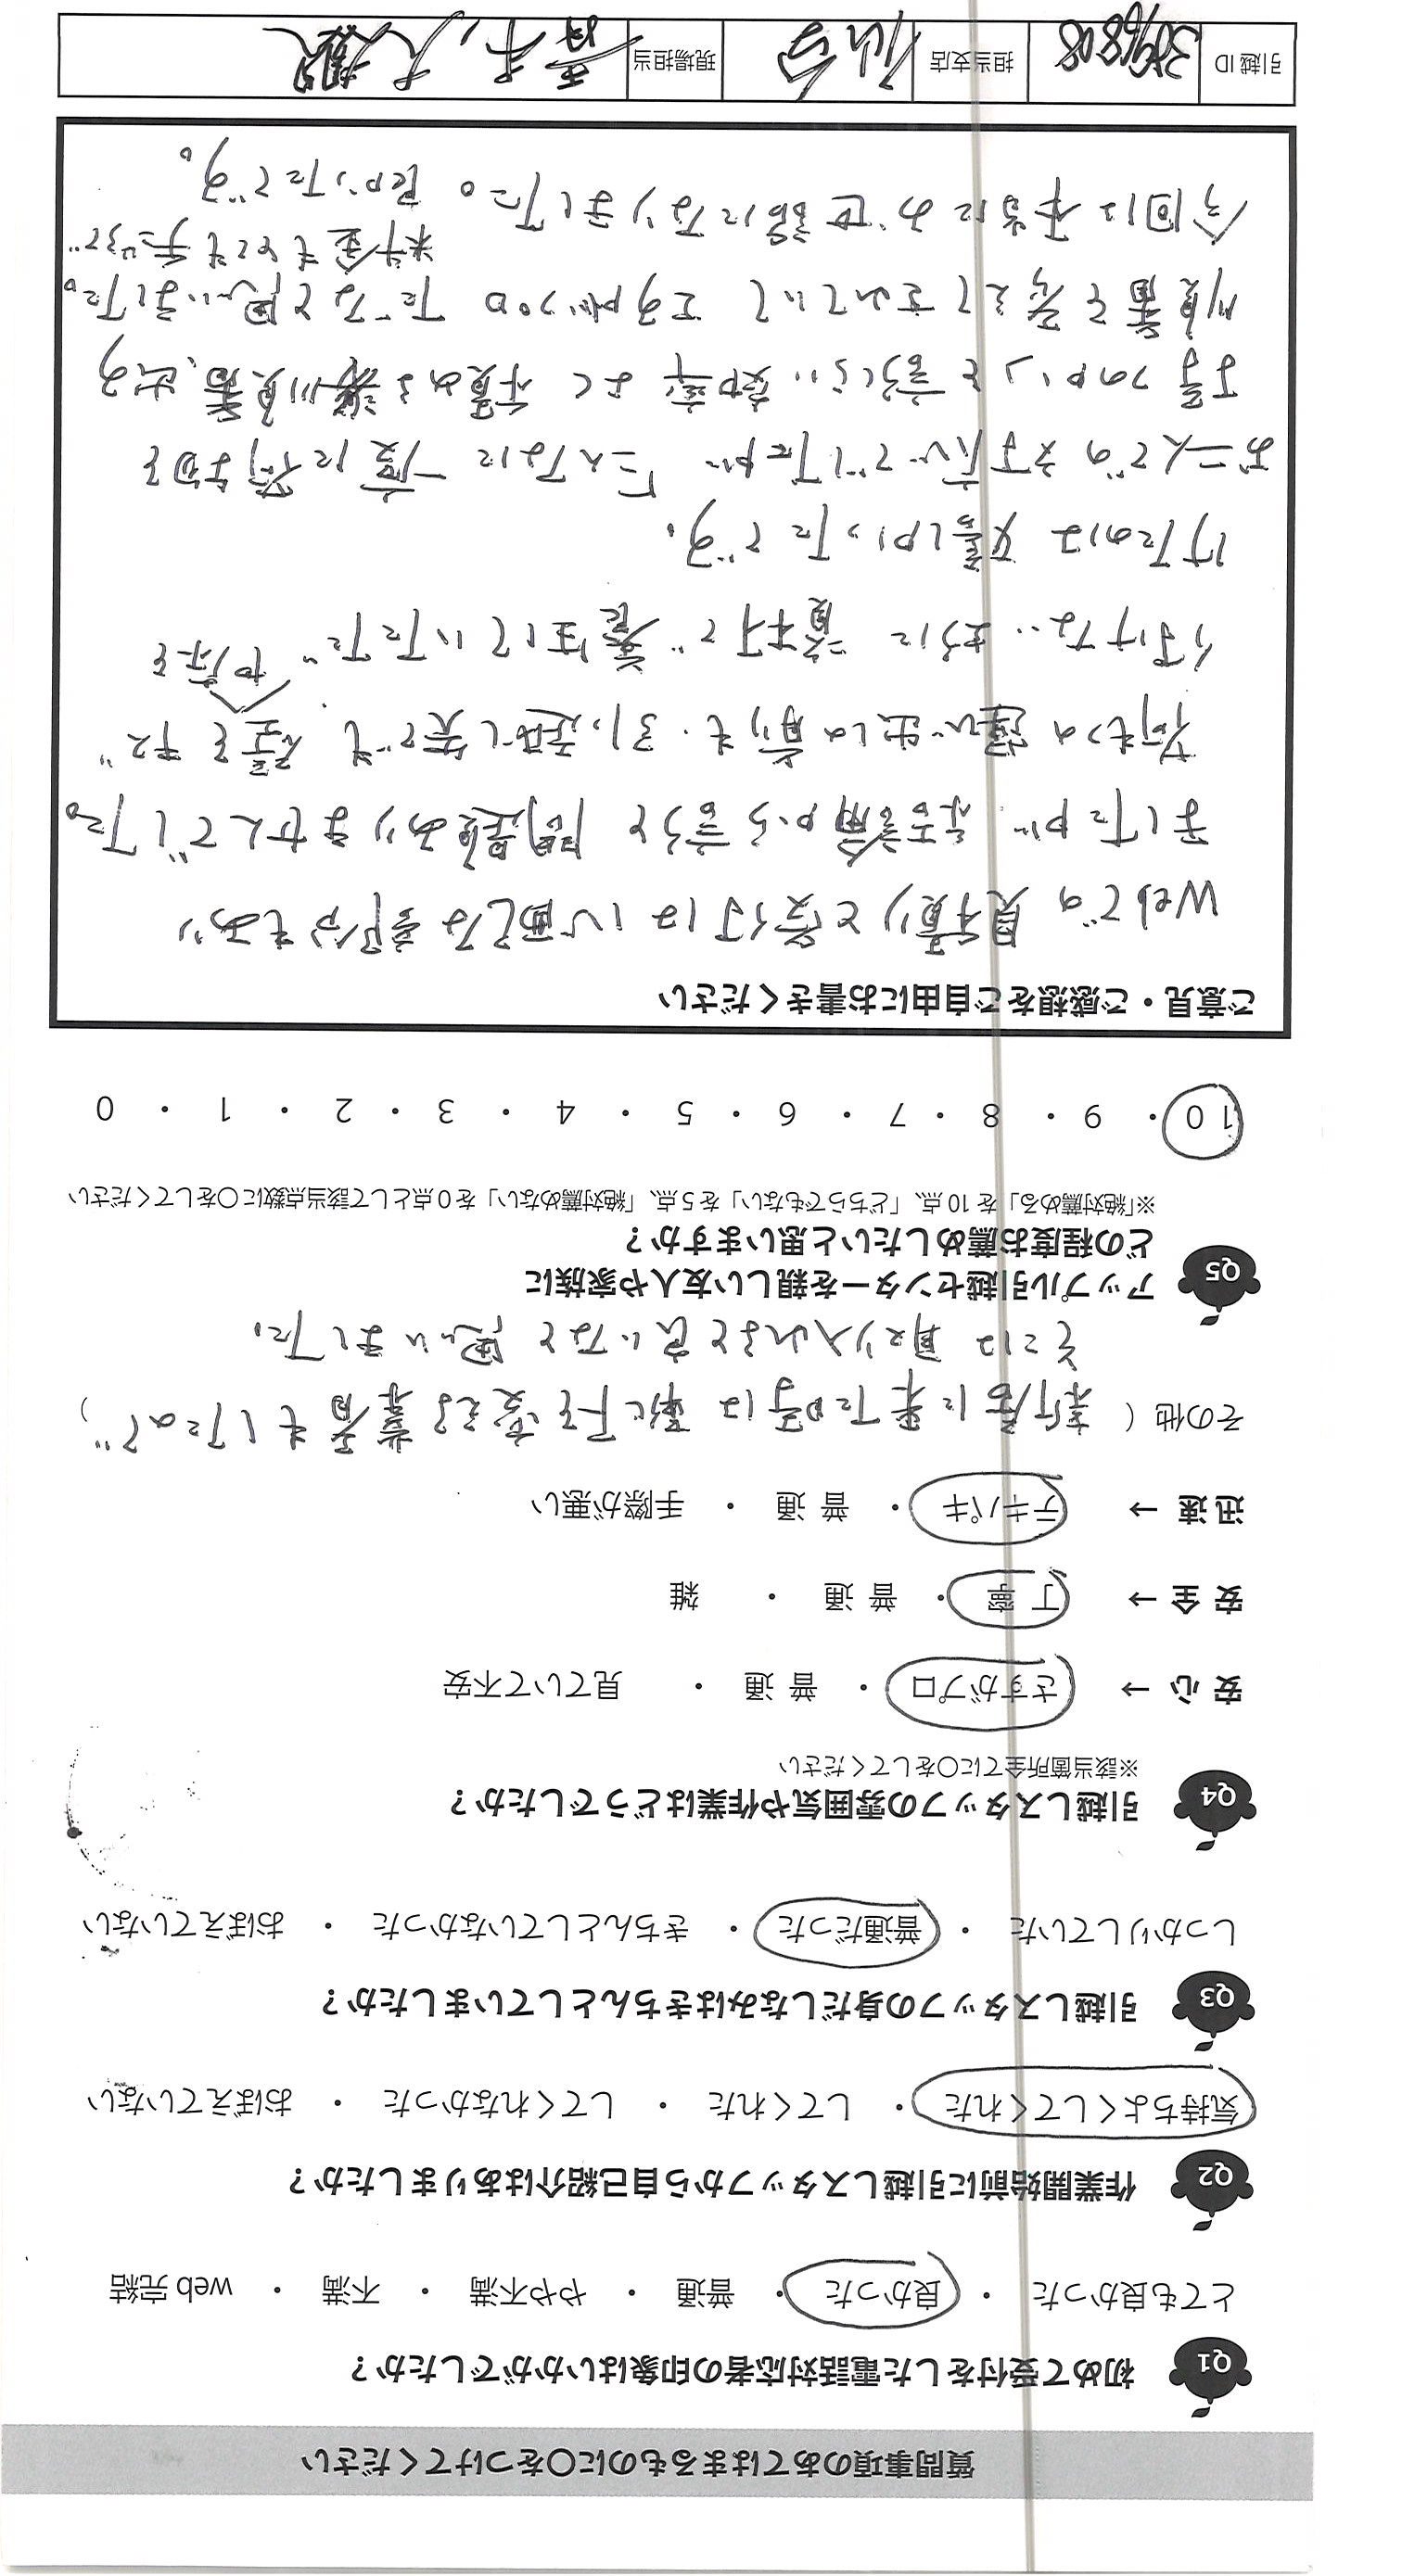 質問事項のあてはまるものに○をつけてください
Q1 初めて受付をした電話対応者の印象はいかがでしたか？
とても良かった ・ 良かった ・ 普通 ・ やや不満 ・ 不満 ・ web 完結
Q2 作業開始前に引越しスタッフから自己紹介はありましたか？
気持ちよくしてくれた ・ してくれた ・ してくれなかった ・ おぼえていない
Q3 引越しスタッフの身だしなみはきちんとしていましたか？
しっかりしていた ・ 普通だった ・ きちんとしていなかった ・ おぼえていない
Q4 引越しスタッフの雰囲気や作業はどうでしたか？
※該当箇所全てに○をしてください
安 心 → さすがプロ ・ 普 通 ・ 見ていて不安
安 全 → 丁 寧 ・ 普 通 ・ 雑
迅 速 → テキパキ ・ 普 通 ・ 手際が悪い
その他（ 新居に来た時は靴下を変える業者もしたので、 ）
そこは取り入れると良いなと思いました。
Q5 アップル引越センターを親しい友人や家族に
どの程度お薦めしたいと思いますか？
※「絶対薦める」を 10 点、「どちらでもない」を 5 点、「絶対薦めない」を 0 点として該当点数に○をしてください
10 ・ 9 ・ 8 ・ 7 ・ 6 ・ 5 ・ 4 ・ 3 ・ 2 ・ 1 ・ 0
ご意見・ご感想をご自由にお書きください
Webでの見積りと受付は心配な部分もあり
ましたが、結論から言うと問題ありませんでした。
荷もつの運び出しの時も、引越し先でも、壁をキズ
付けないように 資材で養生していただ
や床を
けたのは嬉しかったです。
お二人での対応でしたが「こんなに一度に荷物を
手早つかい」と言うくらい効率よく 積める順番、出す
順番を考えてされていて さすがプロ だなと思いました。
今回は本当にお世話になりました。
料金もとても手ごろで
良かったです。
引越 ID 担当支店 仙台 現場担当